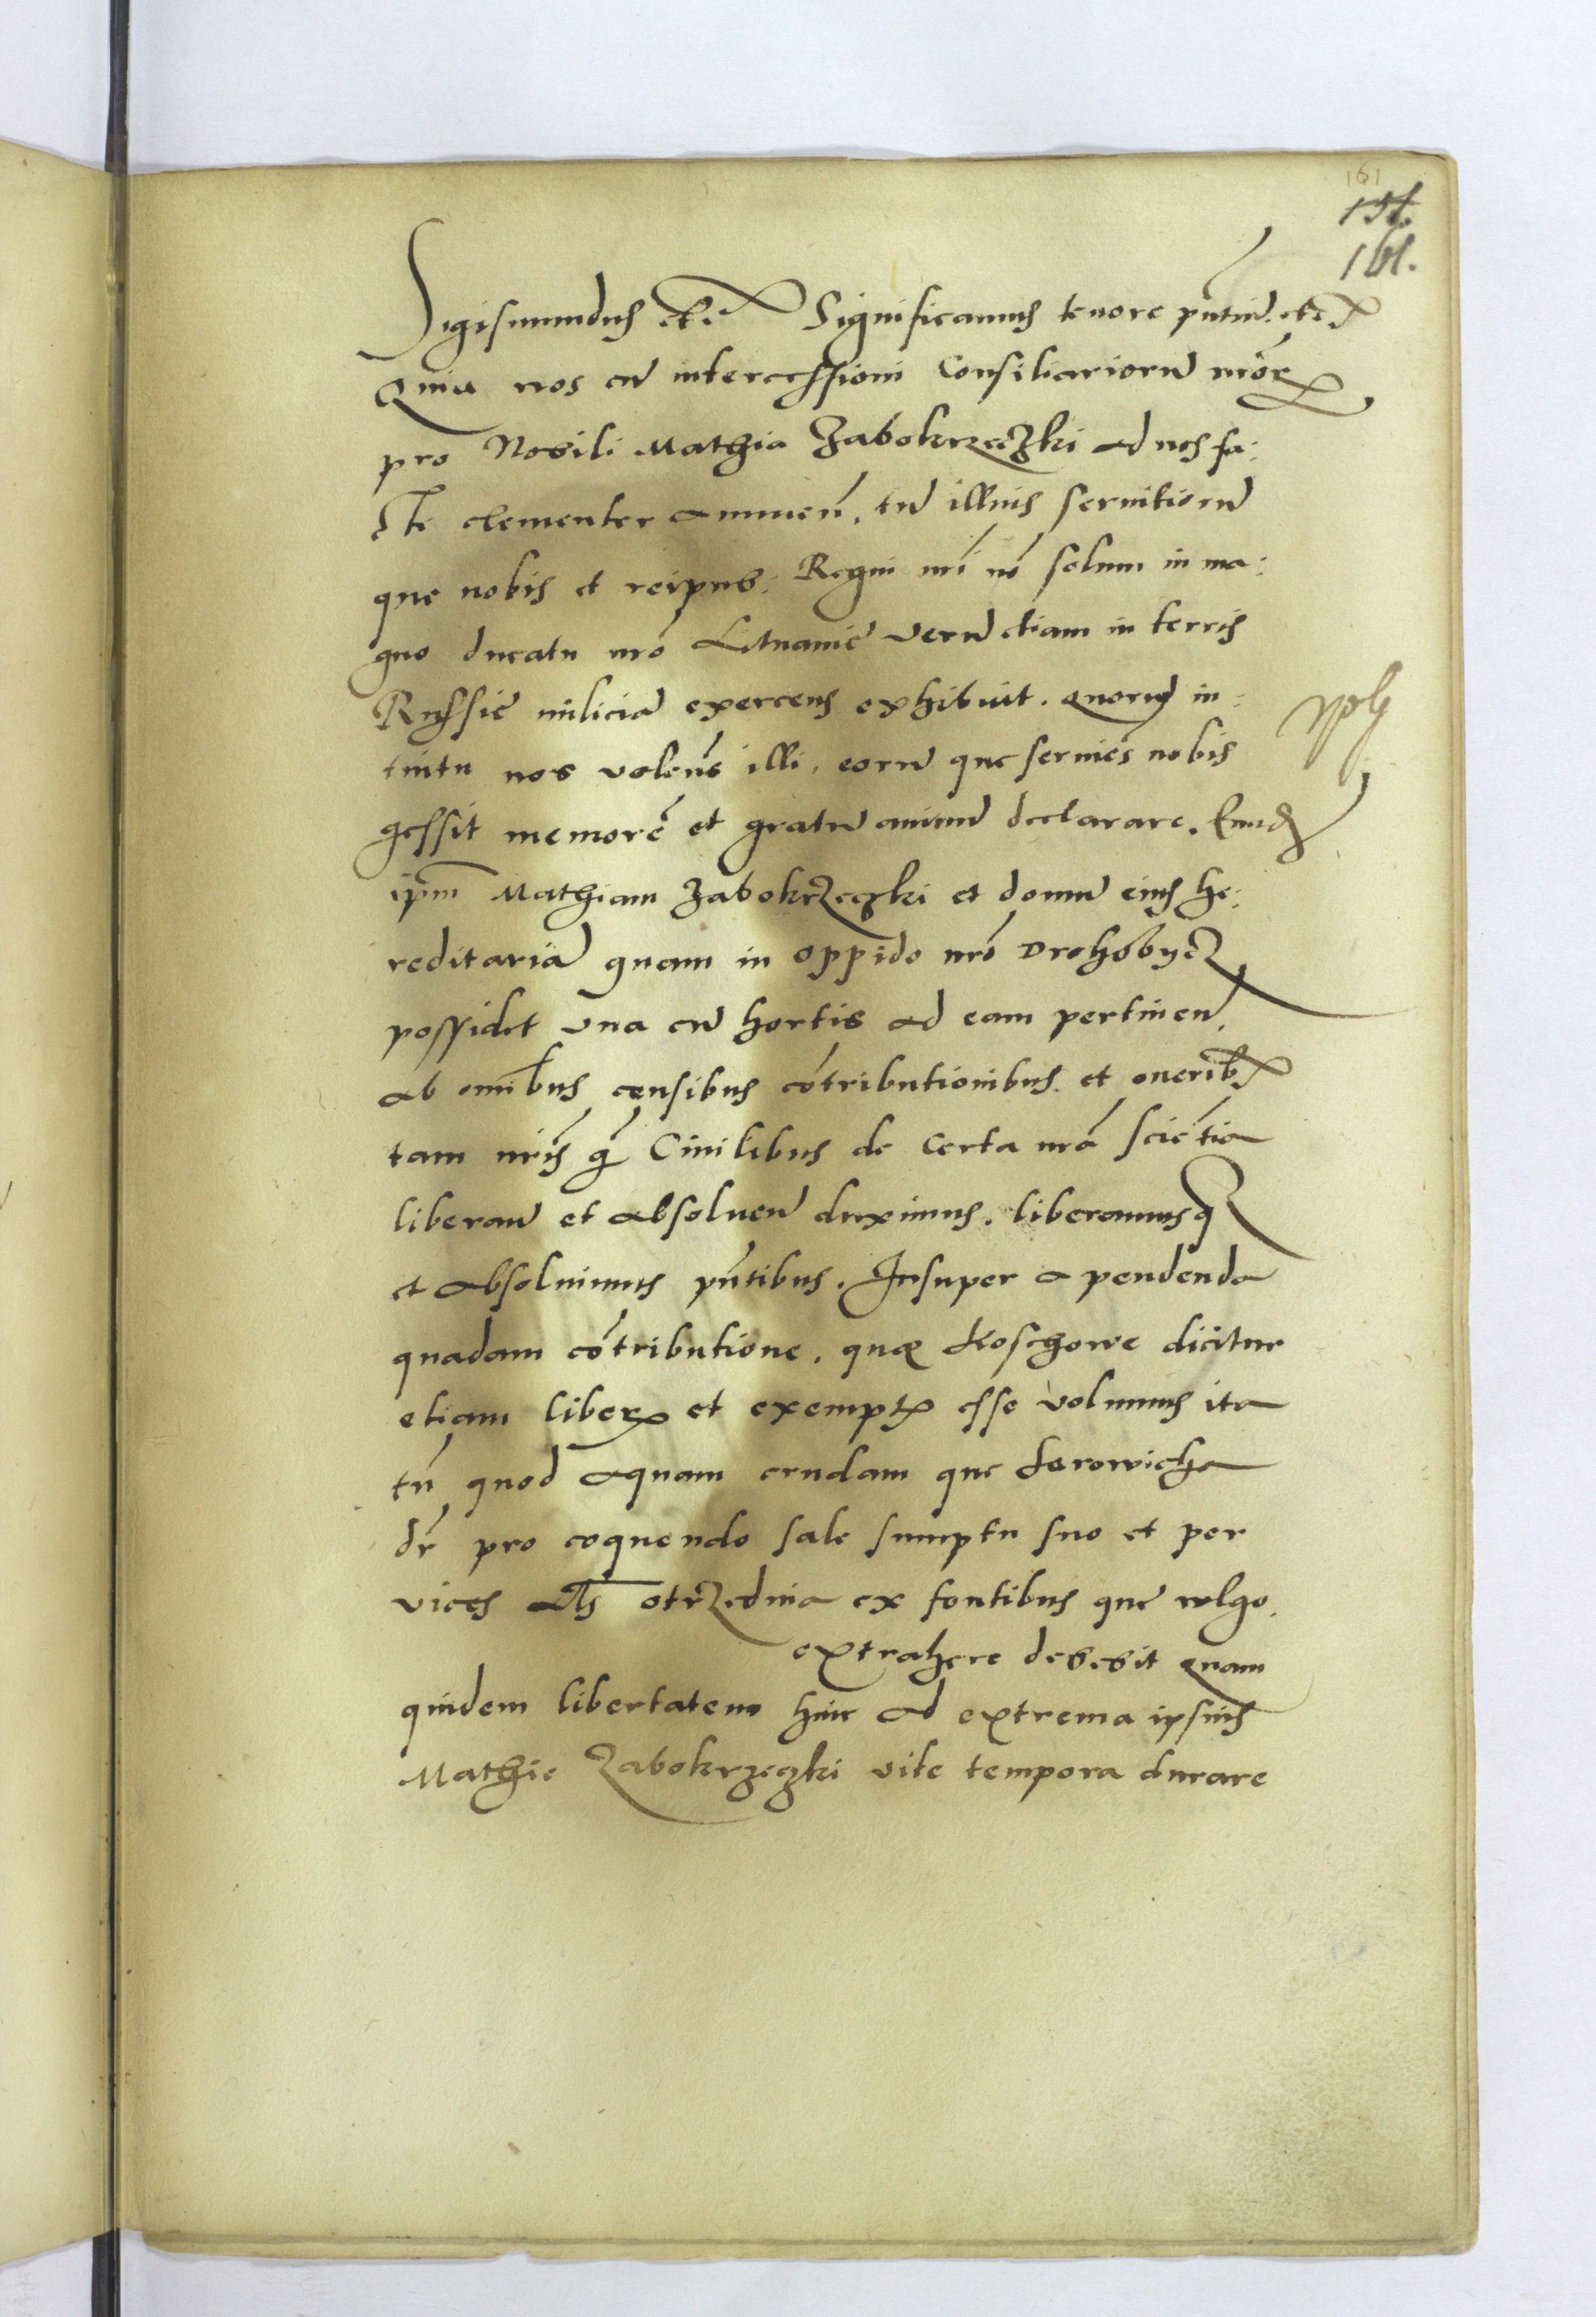 161
161.
Sigismundus etc. Significamus tenore pn̄tiū. etc.
Quia nos cū intercessioni Consiliariorū nr̄or
pro Nobili Mathia Zabokrzeczki ad nos fa:
cte clementer annuen̄. tū illius seruitiorū
que nobis et reipub: Regni nr̄i nō solum in ma:
gno ducatu nr̄o Lituaniē verū etiam in terris
Russiē miliciā exercens exhibuit. quorū in:
tuitu nos volen̄s illi, eorū que seruiēs nobis
gessit memorē et gratū animū declarare. Eund
ipm̄ Mathiam Zabokrzeczki et domū eius he:
reditariā quam in oppido nr̄o Drohobycz
possidet vna cū hortis ad eam pertinen̄.
ab omībus censibus cōtributionibus et onerib
tam nr̄is q̄ Ciuilibus de Certa nr̄a sciētia
liberan̄ et absoluen̄ duximus. liberamusq
et absoluimus pn̄tibus. Insuper a pendenda
quadam cōtributione, quæ Koschowe dicitur
etiam liberos et exemptos esse volumus ita
tn̄ quod aquam crudam que serowicha
dr̄ pro coquendo sale sumptu suo et per
vices als otrzednia ex fontibus que wlgo
extrahere debebit quam
quidem libertatem huic ad extrema ipsius
Mathie Zabokrzeczki vite tempora durare